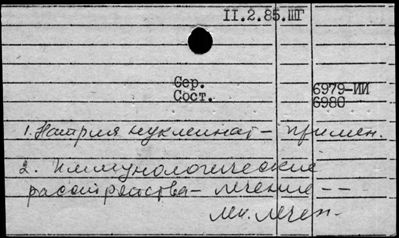 II.2.85.ШГ
Сер.
Сост.
6979-ИИ
6980
1. Натрия нуклеинат - примен.
2. Иммунологические
расстройства - лечение --
лек. лечен.